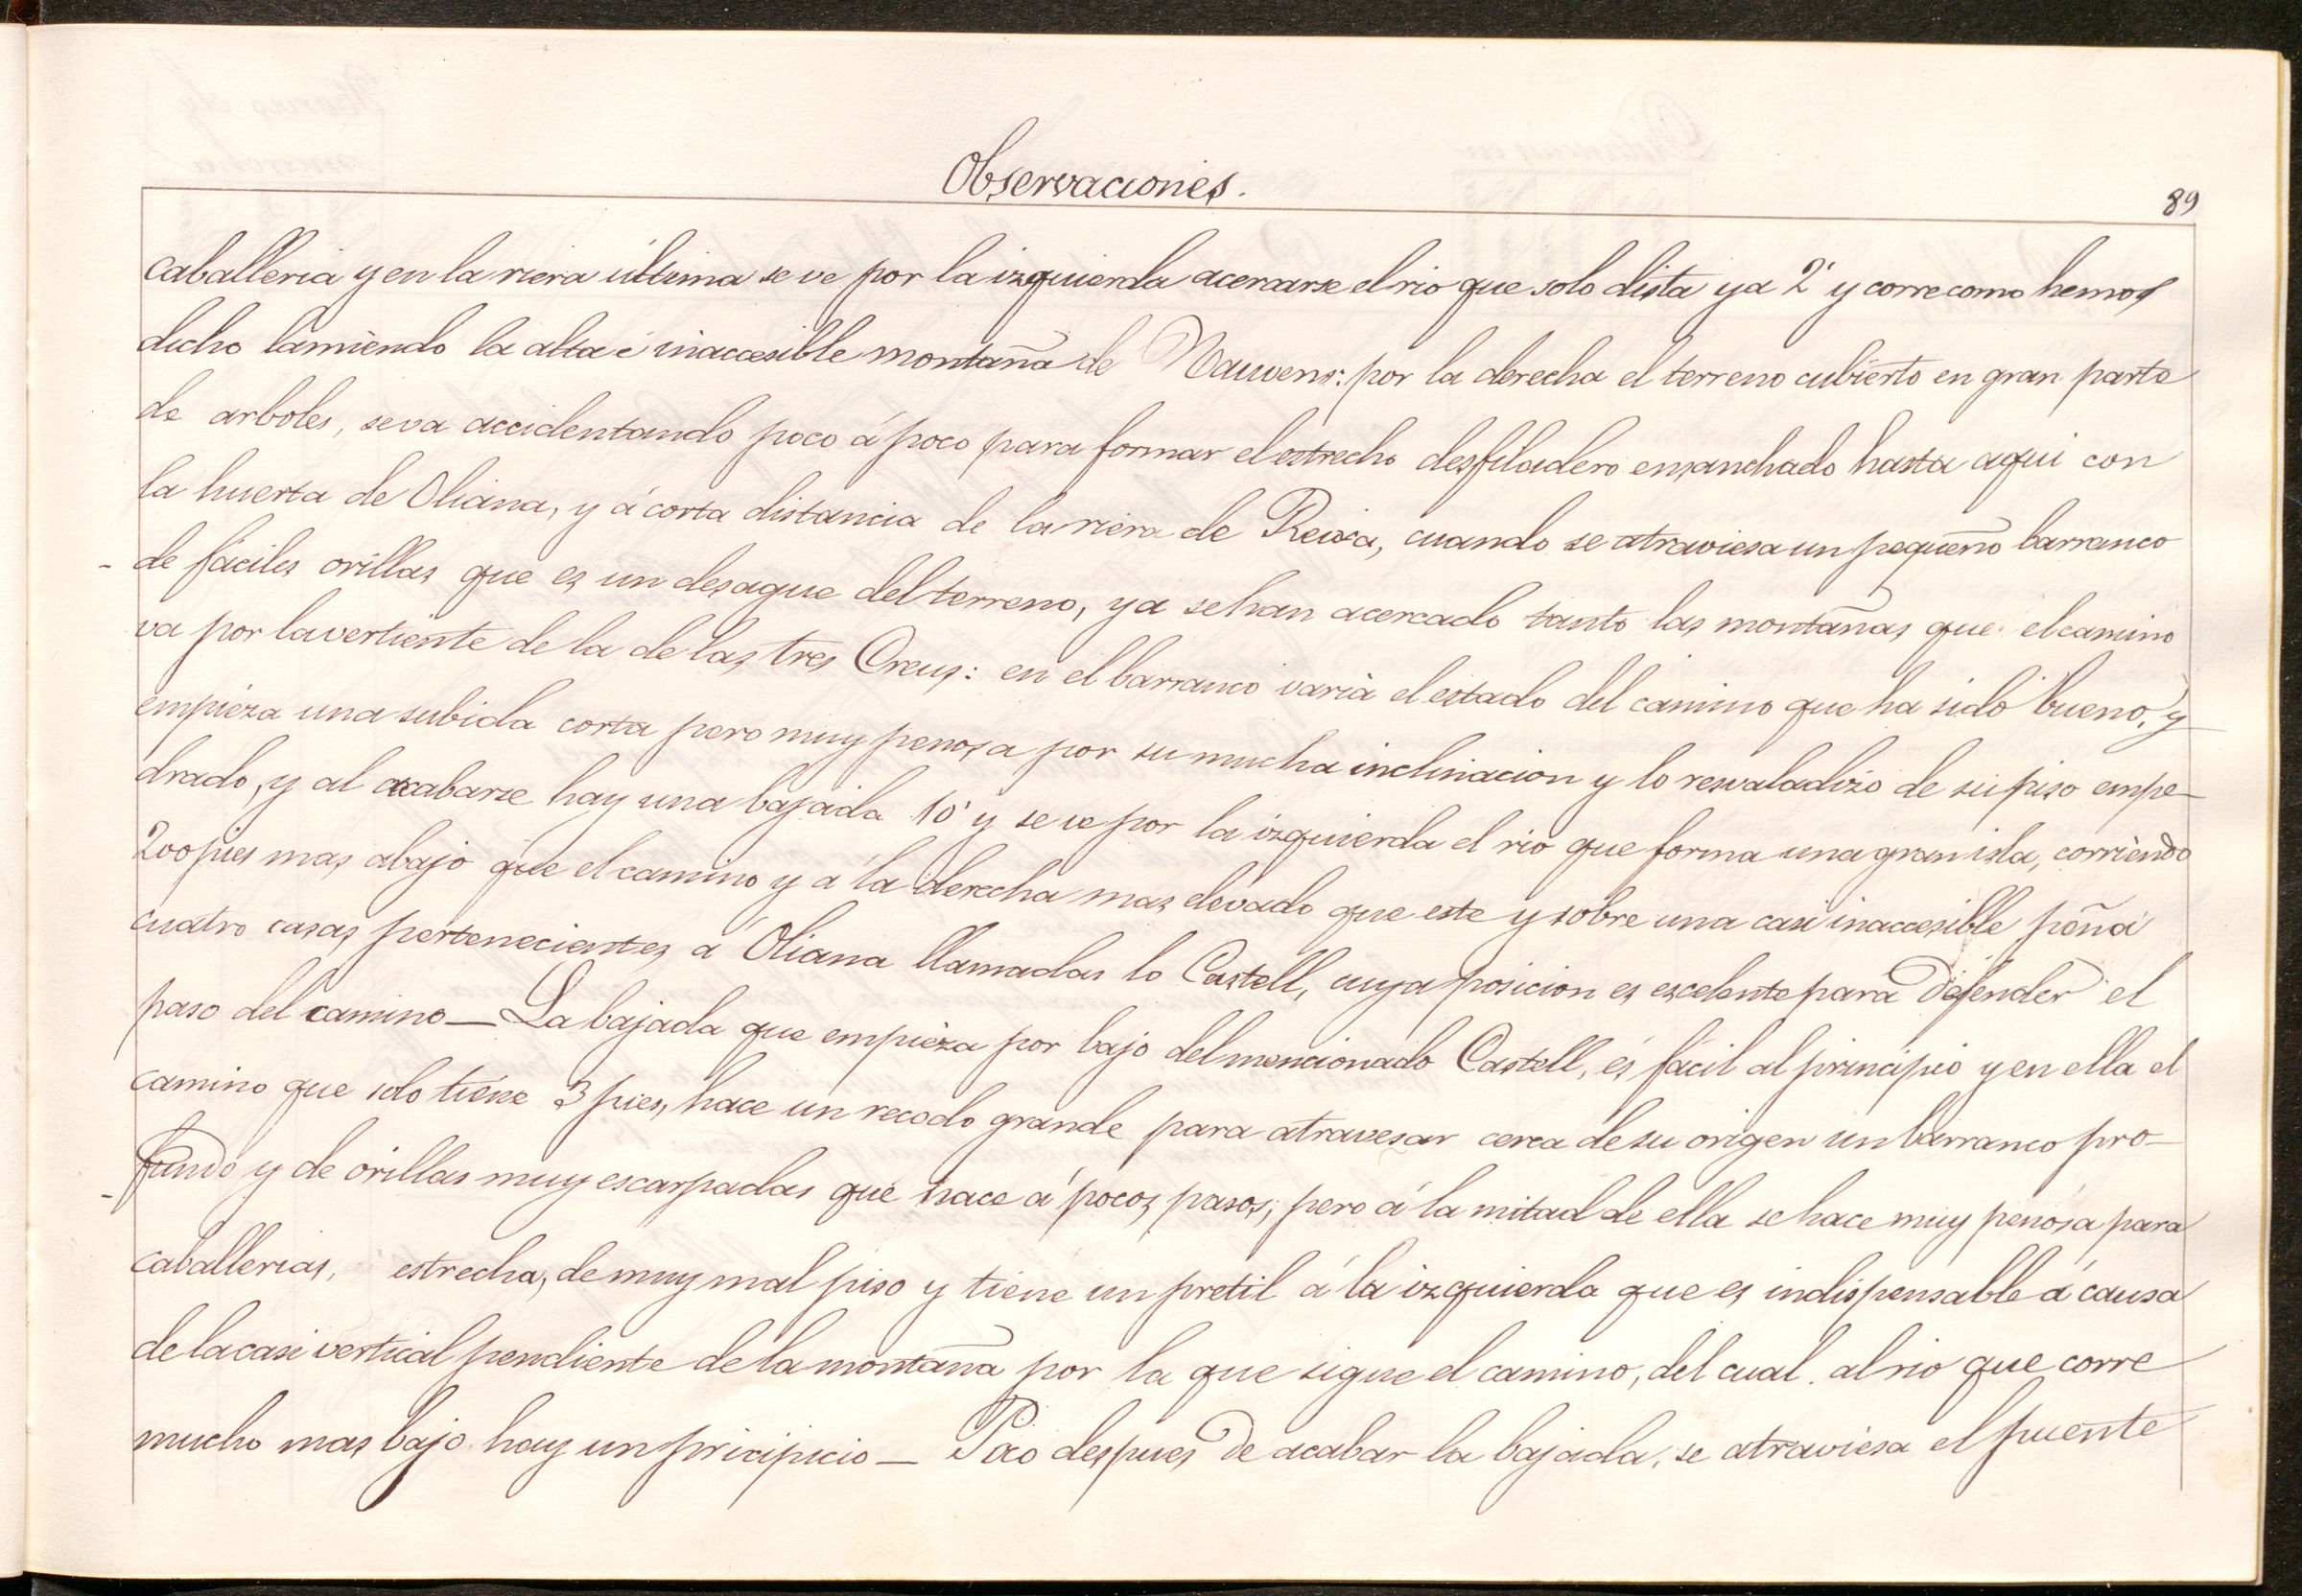 Observaciones.
89
caballeria y en la riera última se ve por la izquierda acercarse el rio que solo dista ya 2' y corre como hemos
dicho lamiendo la alta é inaccesible montaña de Nauvens: por la derecha el terreno cubierto en gran parte
de arboles, se va accidentando poco á poco para formar el estrecho desfiladero ensanchado hasta aqui con
la huerta de Oliana, y á corta distancia de la riera de Reixa, cuando se atraviesa un pequeño barranco
de fáciles orillas que es un desague del terreno, ya se han acercado tanto las montañas que el camino
va por la vertiente de la de las tres Creus: en el barranco varia el estado del camino que ha sido bueno, y
empieza una subida corta pero muy penosa por su mucha inclinacion y lo resvaladizo de su piso empe-
drado, y al acabarse hay una bajada 10' y se ve por la izquierda el rio que forma una gran isla, corriendo
200 pies mas abajo que el camino y a la derecha mas elevado que este y sobre una casi inaccesible peña
cuatro casas pertenecientes á Oliana llamadas lo Castell, cuya posicion es escelente para defender el
paso del camino — La bajada que empieza por bajo del mencionado Castell, es fácil al principio y en ella el
camino que solo tiene 3 pies, hace un recodo grande para atravesar cerca de su origen un barranco pro-
fundo y de orillas muy escarpadas que nace á pocos pasos; pero á la mitad de ella se hace muy penosa para
caballerias, estrecha, de muy mal piso y tiene un pretil á la izquierda que es indispensable á causa
de la casi vertical pendiente de la montaña por la que sigue el camino, del cual al rio que corre
mucho mas bajo hay un pricipicio — Poco despues de acabar la bajada, se atraviesa el puente